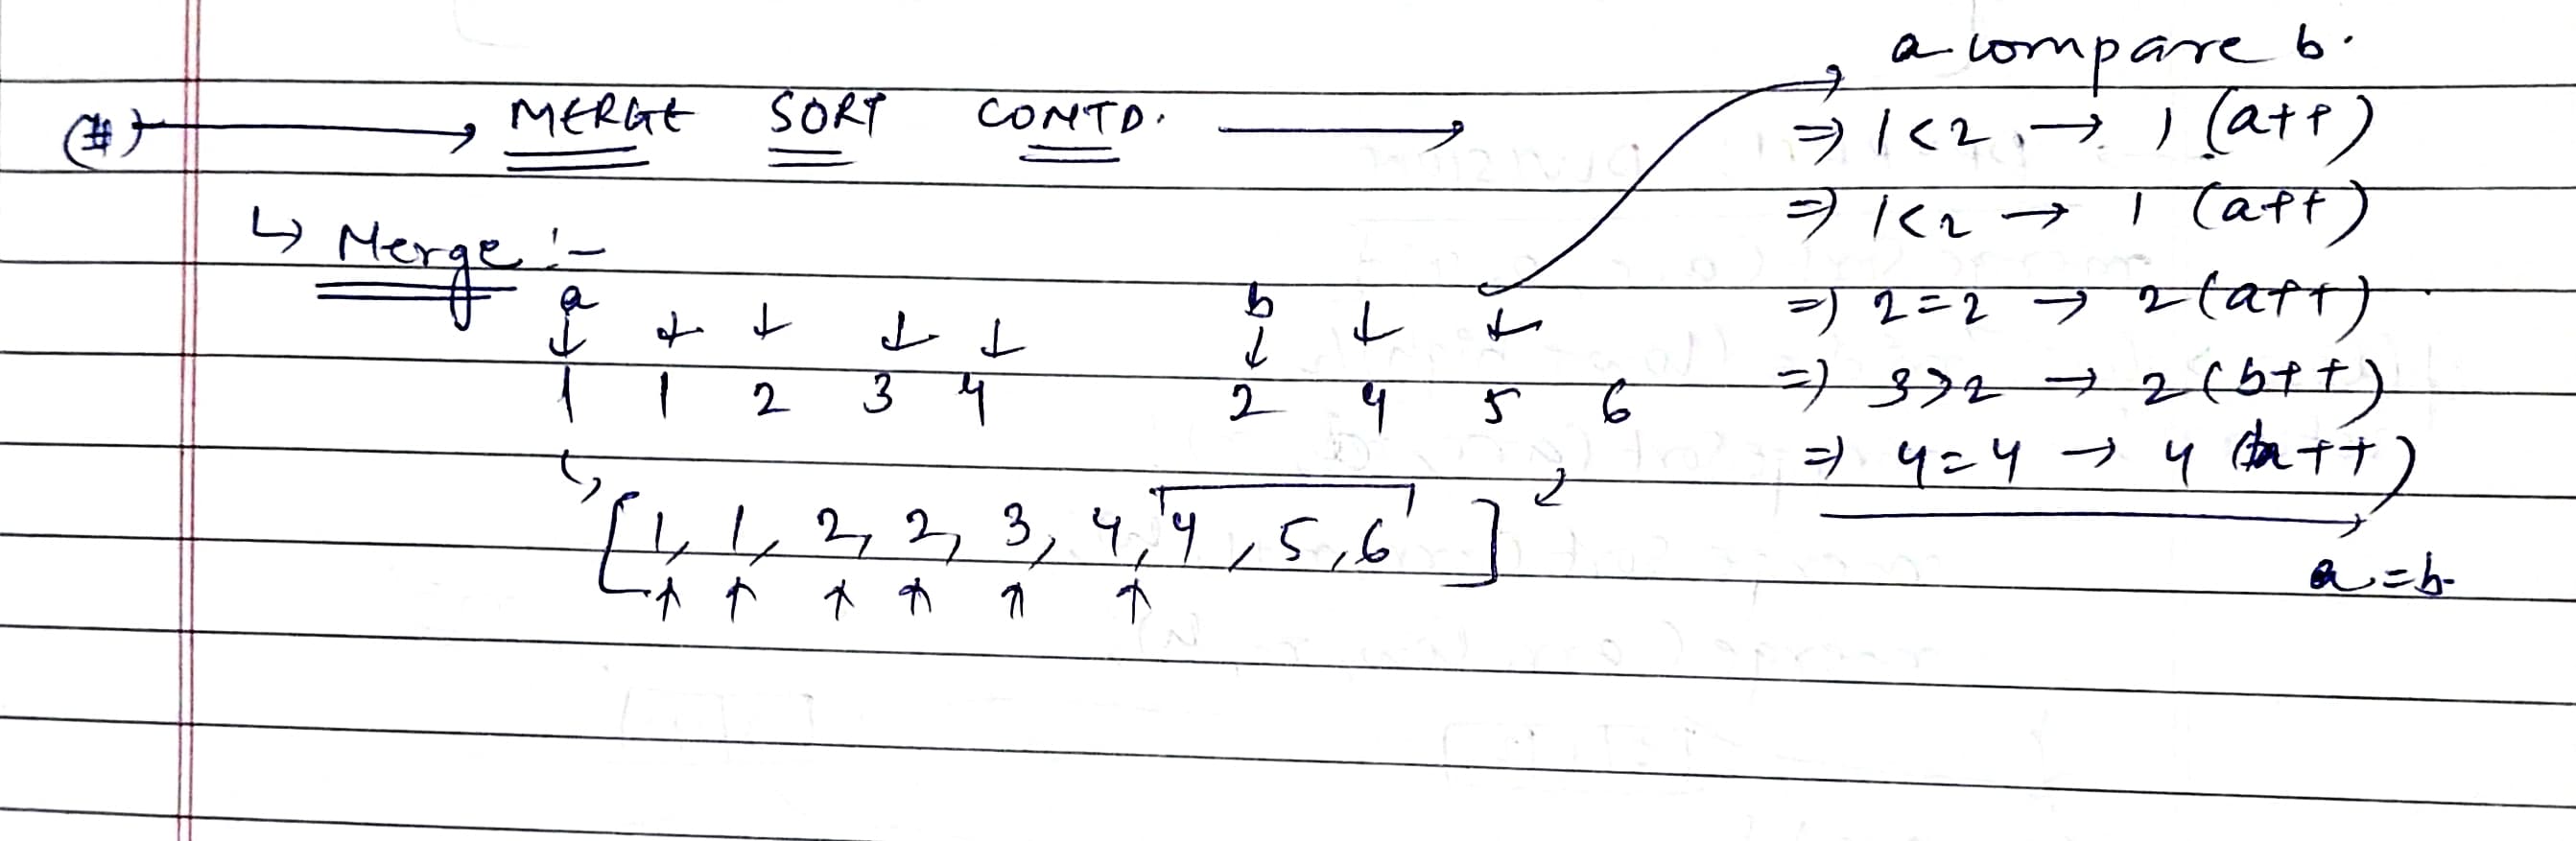 (#) → MERGE SORT CONTD. →
↳ Merge :-
a b
↓ ↓ ↓ ↓ ↓ ↓ ↓ ↓
1 1 2 3 4 2 4 5 6
[1, 1, 2, 2, 3, 4, 4, 5, 6]
↑ ↑ ↑ ↑ ↑ ↑
a compare b.
⇒ 1<2 → 1 (a++)
⇒ 1<2 → 1 (a++)
⇒ 2=2 → 2 (a++)
⇒ 3>2 → 2 (b++)
⇒ 4=4 → 4 (a++)
a=b